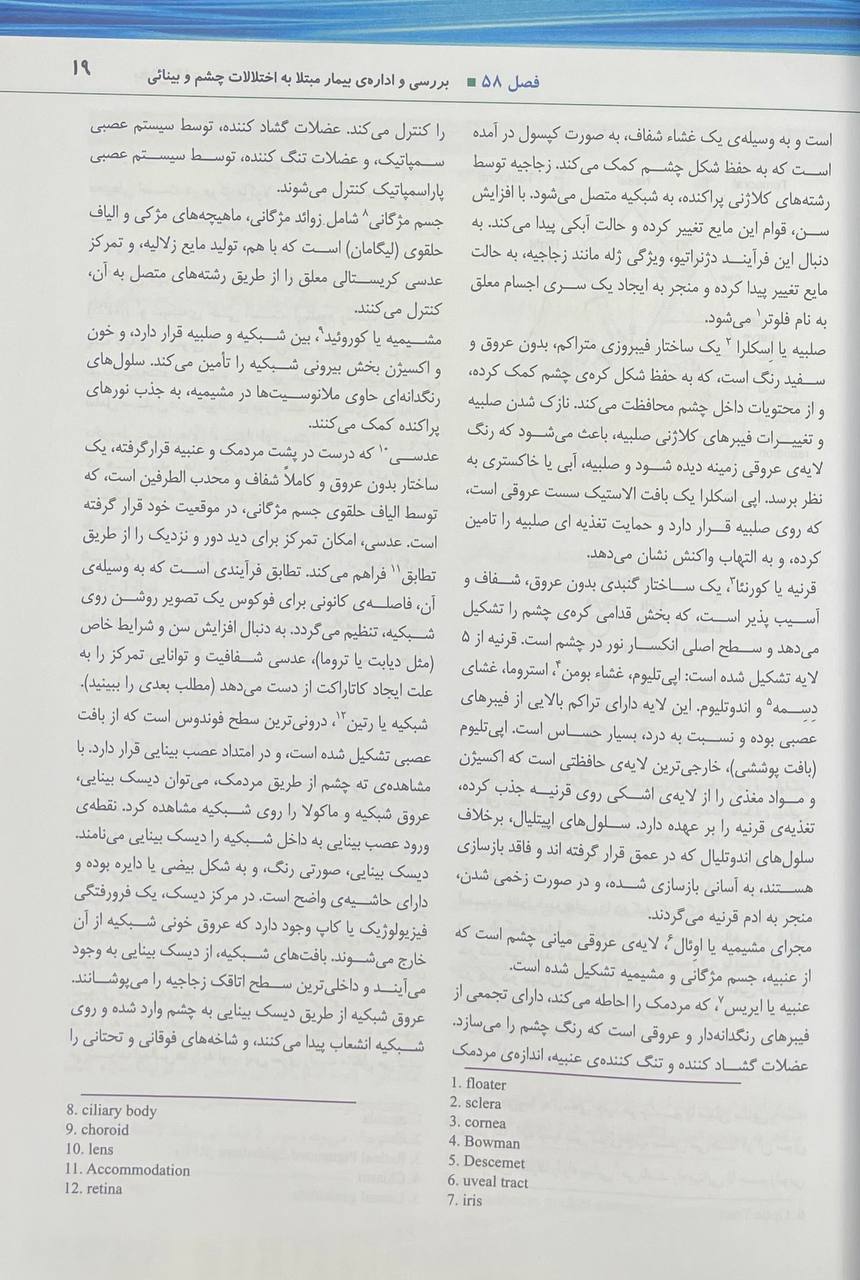 فصل ۵۸ ■ بررسی و اداره‌ی بیمار مبتلا به اختلالات چشم و بینائی
۱۹
است و به وسیله‌ی یک غشاء شفاف، به صورت کپسول در آمده
است که به حفظ شکل چشم کمک می‌کند. زجاجیه توسط
رشته‌های کلاژنی پراکنده، به شبکیه متصل می‌شود. با افزایش
سن، قوام این مایع تغییر کرده و حالت آبکی پیدا می‌کند. به
دنبال این فرآیند دژنراتیو، ویژگی ژله مانند زجاجیه، به حالت
مایع تغییر پیدا کرده و منجر به ایجاد یک سری اجسام معلق
به نام فلوتر۱ می‌شود.
صلبیه یا اِسکلرا ۲ یک ساختار فیبروزی متراکم، بدون عروق و
سفید رنگ است، که به حفظ شکل کره‌ی چشم کمک کرده،
و از محتویات داخل چشم محافظت می‌کند. نازک شدن صلبیه
و تغییرات فیبرهای کلاژنی صلبیه، باعث می‌شود که رنگ
لایه‌ی عروقی زمینه دیده شود و صلبیه، آبی یا خاکستری به
نظر برسد. اپی اسکلرا یک بافت الاستیک سست عروقی است،
که روی صلبیه قرار دارد و حمایت تغذیه ای صلبیه را تامین
کرده، و به التهاب واکنش نشان می‌دهد.
قرنیه یا کورنئا۳، یک ساختار گنبدی بدون عروق، شفاف و
آسیب پذیر است، که بخش قدامی کره‌ی چشم را تشکیل
می‌دهد و سطح اصلی انکسار نور در چشم است. قرنیه از ۵
لایه تشکیل شده است: اپی‌تلیوم، غشاء بومن۴، استروما، غشای
دِسِمه۵ و اندوتلیوم. این لایه دارای تراکم بالایی از فیبرهای
عصبی بوده و نسبت به درد، بسیار حساس است. اپی‌تلیوم
(بافت پوششی)، خارجی‌ترین لایه‌ی حافظتی است که اکسیژن
و مواد مغذی را از لایه‌ی اشکی روی قرنیه جذب کرده،
تغذیه‌ی قرنیه را بر عهده دارد. سلول‌های اپیتلیال، برخلاف
سلول‌های اندوتلیال که در عمق قرار گرفته اند و فاقد بازسازی
هستند، به آسانی بازسازی شده، و در صورت زخمی شدن،
منجر به ادم قرنیه می‌گردند.
مجرای مشیمیه یا اوئال۶، لایه‌ی عروقی میانی چشم است که
از عنبیه، جسم مژگانی و مشیمیه تشکیل شده است.
عنبیه یا ایریس۷، که مردمک را احاطه می‌کند، دارای تجمعی از
فیبرهای رنگدانه‌دار و عروقی است که رنگ چشم را می‌سازد.
عضلات گشاد کننده و تنگ کننده‌ی عنبیه، اندازه‌ی مردمک
1. floater
2. sclera
3. cornea
4. Bowman
5. Descemet
6. uveal tract
7. iris
را کنترل می‌کند. عضلات گشاد کننده، توسط سیستم عصبی
سمپاتیک، و عضلات تنگ کننده، توسط سیستم عصبی
پاراسمپاتیک کنترل می‌شوند.
جسم مژگانی۸ شامل زوائد مژگانی، ماهیچه‌های مژکی و الیاف
حلقوی (لیگامان) است که با هم، تولید مایع زلالیه، و تمرکز
عدسی کریستالی معلق را از طریق رشته‌های متصل به آن،
کنترل می‌کنند.
مشیمیه یا کوروئید۹، بین شبکیه و صلبیه قرار دارد، و خون
و اکسیژن بخش بیرونی شبکیه را تأمین می‌کند. سلول‌های
رنگدانه‌ای حاوی ملانوسیت‌ها در مشیمیه، به جذب نورهای
پراکنده کمک می‌کنند.
عدسی۱۰ که درست در پشت مردمک و عنبیه قرارگرفته، یک
ساختار بدون عروق و کاملاً شفاف و محدب الطرفین است، که
توسط الیاف حلقوی جسم مژگانی، در موقعیت خود قرار گرفته
است. عدسی، امکان تمرکز برای دید دور و نزدیک را از طریق
تطابق۱۱ فراهم می‌کند. تطابق فرآیندی است که به وسیله‌ی
آن، فاصله‌ی کانونی برای فوکوس یک تصویر روشن روی
شبکیه، تنظیم می‌گردد. به دنبال افزایش سن و شرایط خاص
(مثل دیابت یا تروما)، عدسی شفافیت و توانایی تمرکز را به
علت ایجاد کاتاراکت از دست می‌دهد (مطلب بعدی را ببینید).
شبکیه یا رتین۱۲، درونی‌ترین سطح فوندوس است که از بافت
عصبی تشکیل شده است، و در امتداد عصب بینایی قرار دارد. با
مشاهده‌ی ته چشم از طریق مردمک، می‌توان دیسک بینایی،
عروق شبکیه و ماکولا را روی شبکیه مشاهده کرد. نقطه‌ی
ورود عصب بینایی به داخل شبکیه را دیسک بینایی می‌نامند.
دیسک بینایی، صورتی رنگ، و به شکل بیضی یا دایره بوده و
دارای حاشیه‌ی واضح است. در مرکز دیسک، یک فرورفتگی
فیزیولوژیک یا کاپ وجود دارد که عروق خونی شبکیه از آن
خارج می‌شوند. بافت‌های شبکیه، از دیسک بینایی به وجود
می‌آیند و داخلی‌ترین سطح اتاقک زجاجیه را می‌پوشانند.
عروق شبکیه از طریق دیسک بینایی به چشم وارد شده و روی
شبکیه انشعاب پیدا می‌کنند، و شاخه‌های فوقانی و تحتانی را
8. ciliary body
9. choroid
10. lens
11. Accommodation
12. retina